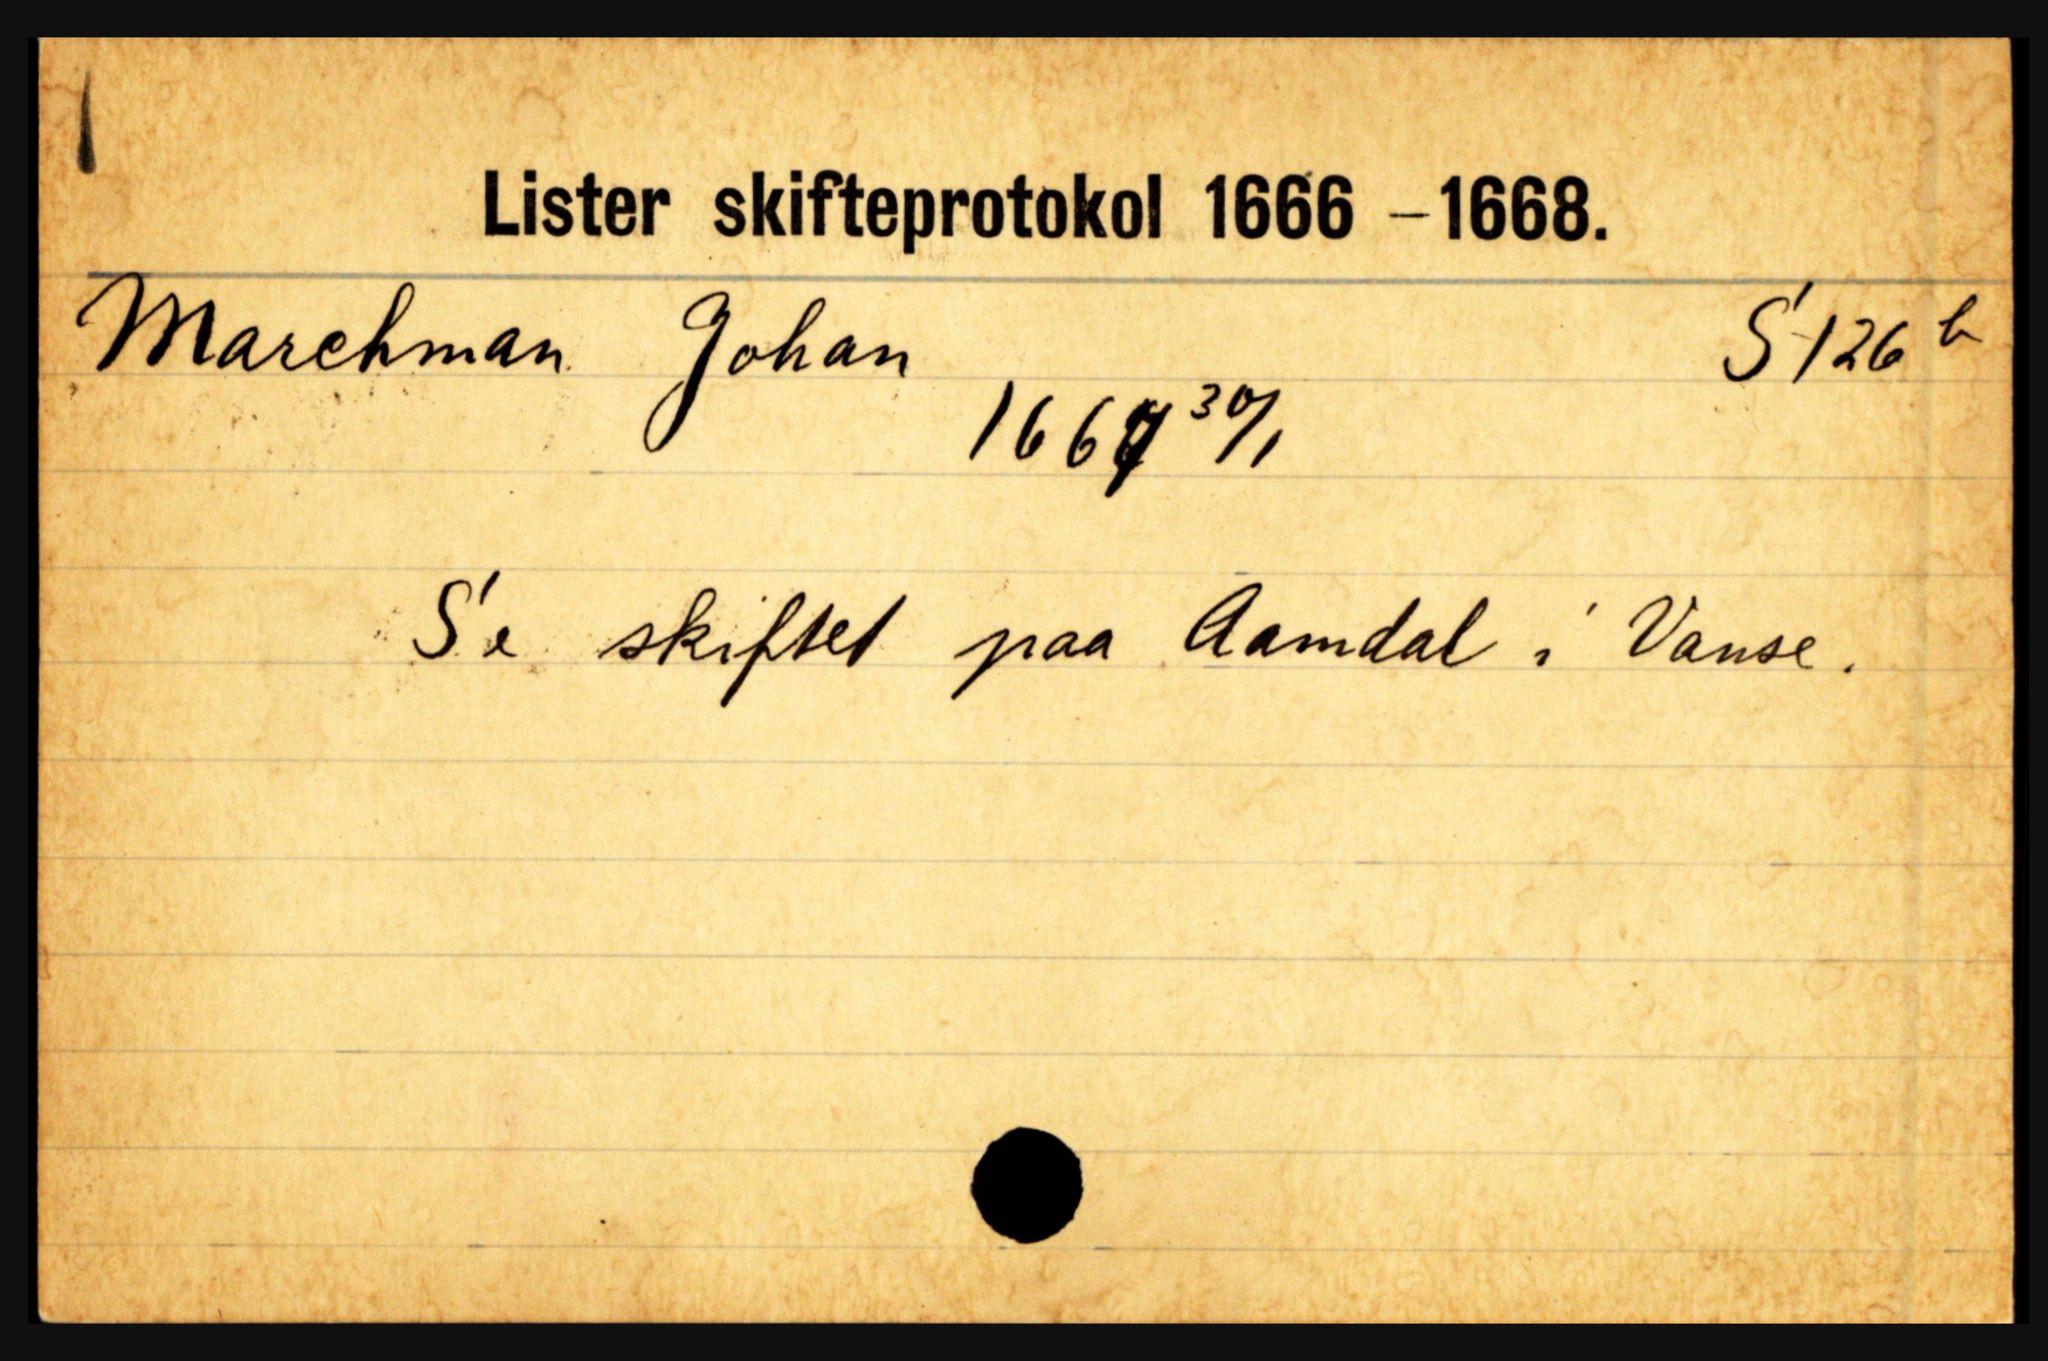 Lister skifteprotokol 1666 – 1668.
Marchman Johan S 126 b
1667 30/1
Se skiftet paa Aamdal i Vanse.